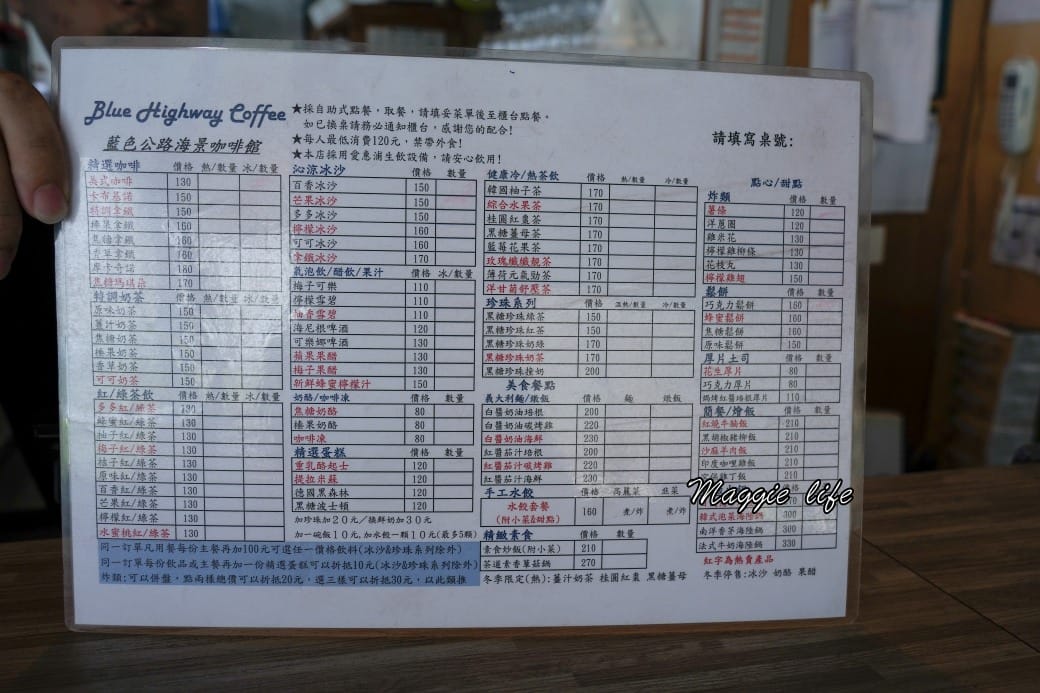 Blue Highway Coffee
藍色公路海景咖啡館
★採自助式點餐，取餐，請填妥菜單後至櫃台點餐。
如已換桌請務必通知櫃台，感謝您的配合!
★每人最低消費120元，禁帶外食!
★本店採用愛惠浦生飲設備，請安心飲用!
請填寫桌號:
精選咖啡 價格 熱/數量 冰/數量
美式咖啡 130
卡布基諾 150
特調拿鐵 150
榛果拿鐵 160
焦糖拿鐵 160
香草拿鐵 160
摩卡奇諾 180
焦糖瑪琪朵 170
特調奶茶 價格 熱/數量 冰/數量
原味奶茶 150
薑汁奶茶 150
焦糖奶茶 150
榛果奶茶 150
香草奶茶 150
可可奶茶 150
紅/綠茶飲 價格 熱/數量 冰/數量
多多紅/綠茶 130
蜂蜜紅/綠茶 130
柚子紅/綠茶 130
梅子紅/綠茶 130
桔子紅/綠茶 130
原味紅/綠茶 130
百香紅/綠茶 130
芒果紅/綠茶 130
檸檬紅/綠茶 130
水蜜桃紅/綠茶 130
沁涼冰沙 價格 數量
百香冰沙 150
芒果冰沙 150
多多冰沙 150
檸檬冰沙 160
可可冰沙 160
拿鐵冰沙 170
氣泡飲/醋飲/果汁 價格 冰/數量
梅子可樂 110
檸檬雪碧 110
柚香雪碧 110
海尼根啤酒 120
可樂娜啤酒 130
蘋果果醋 130
梅子果醋 130
新鮮蜂蜜檸檬汁 150
奶酪/咖啡凍 價格 數量
焦糖奶酪 80
榛果奶酪 80
咖啡凍 80
精選蛋糕 價格 數量
重乳酪起士 120
提拉米蘇 120
德國黑森林 120
黑糖波士頓 120
加珍珠加20元/換鮮奶加30元
加一碗飯10元,加水餃一顆10元(最多5顆)
健康冷/熱茶飲 價格 熱/數量 冷/數量
韓國柚子茶 170
綜合水果茶 170
桂圓紅棗茶 170
黑糖薑母茶 170
藍莓花果茶 170
玫瑰纖纖靚茶 170
薄荷元氣勁茶 170
洋甘菊舒壓茶 170
珍珠系列 價格 溫熱/數量 冷/數量
黑糖珍珠綠茶 150
黑糖珍珠紅茶 150
黑糖珍珠奶綠 170
黑糖珍珠奶茶 170
黑糖珍珠撞奶 200
美食餐點
義大利麵/燉飯 價格 麵 燉飯
白醬奶油培根 200
白醬奶油碳烤雞 220
白醬奶油海鮮 230
紅醬茄汁培根 200
紅醬茄汁碳烤雞 220
紅醬茄汁海鮮 230
手工水餃 價格 高麗菜 韭菜
水餃套餐
(附小菜&甜點) 160 煮/炸 煮/炸
精緻素食 價格 數量
素食炒飯(附小菜) 210
茶道素香草菇鍋 270
冬季限定(熱):薑汁奶茶 桂圓紅棗 黑糖薑母
點心/甜點
炸類 價格 數量
薯條 120
洋蔥圈 120
雞米花 130
檸檬雞柳條 130
花枝丸 130
檸檬雞翅 150
鬆餅 價格 數量
巧克力鬆餅 150
蜂蜜鬆餅 160
焦糖鬆餅 160
原味鬆餅 150
厚片土司 價格 數量
花生厚片 80
巧克力厚片 80
焗烤紅醬培根厚片 110
簡餐/燴飯 價格 數量
紅燒牛腩飯 210
黑胡椒豬柳飯 210
沙麻羊肉飯 210
印度咖哩雞飯 210
宮保雞丁飯
韓式泡菜海陸鍋 300
南洋香茅海陸鍋 300
法式牛奶海陸鍋 330
紅字為熱賣產品
冬季停售:冰沙 奶酪 果醋
同一訂單凡用餐每份主餐再加100元可選任一價格飲料(冰沙&珍珠系列除外)
同一訂單每份飲品或主餐再加一份精選蛋糕可以折抵10元(冰沙&珍珠系列除外)
炸類:可以併盤，點兩樣總價可以折抵20元，選三樣可以折抵30元，以此類推
Maggie life